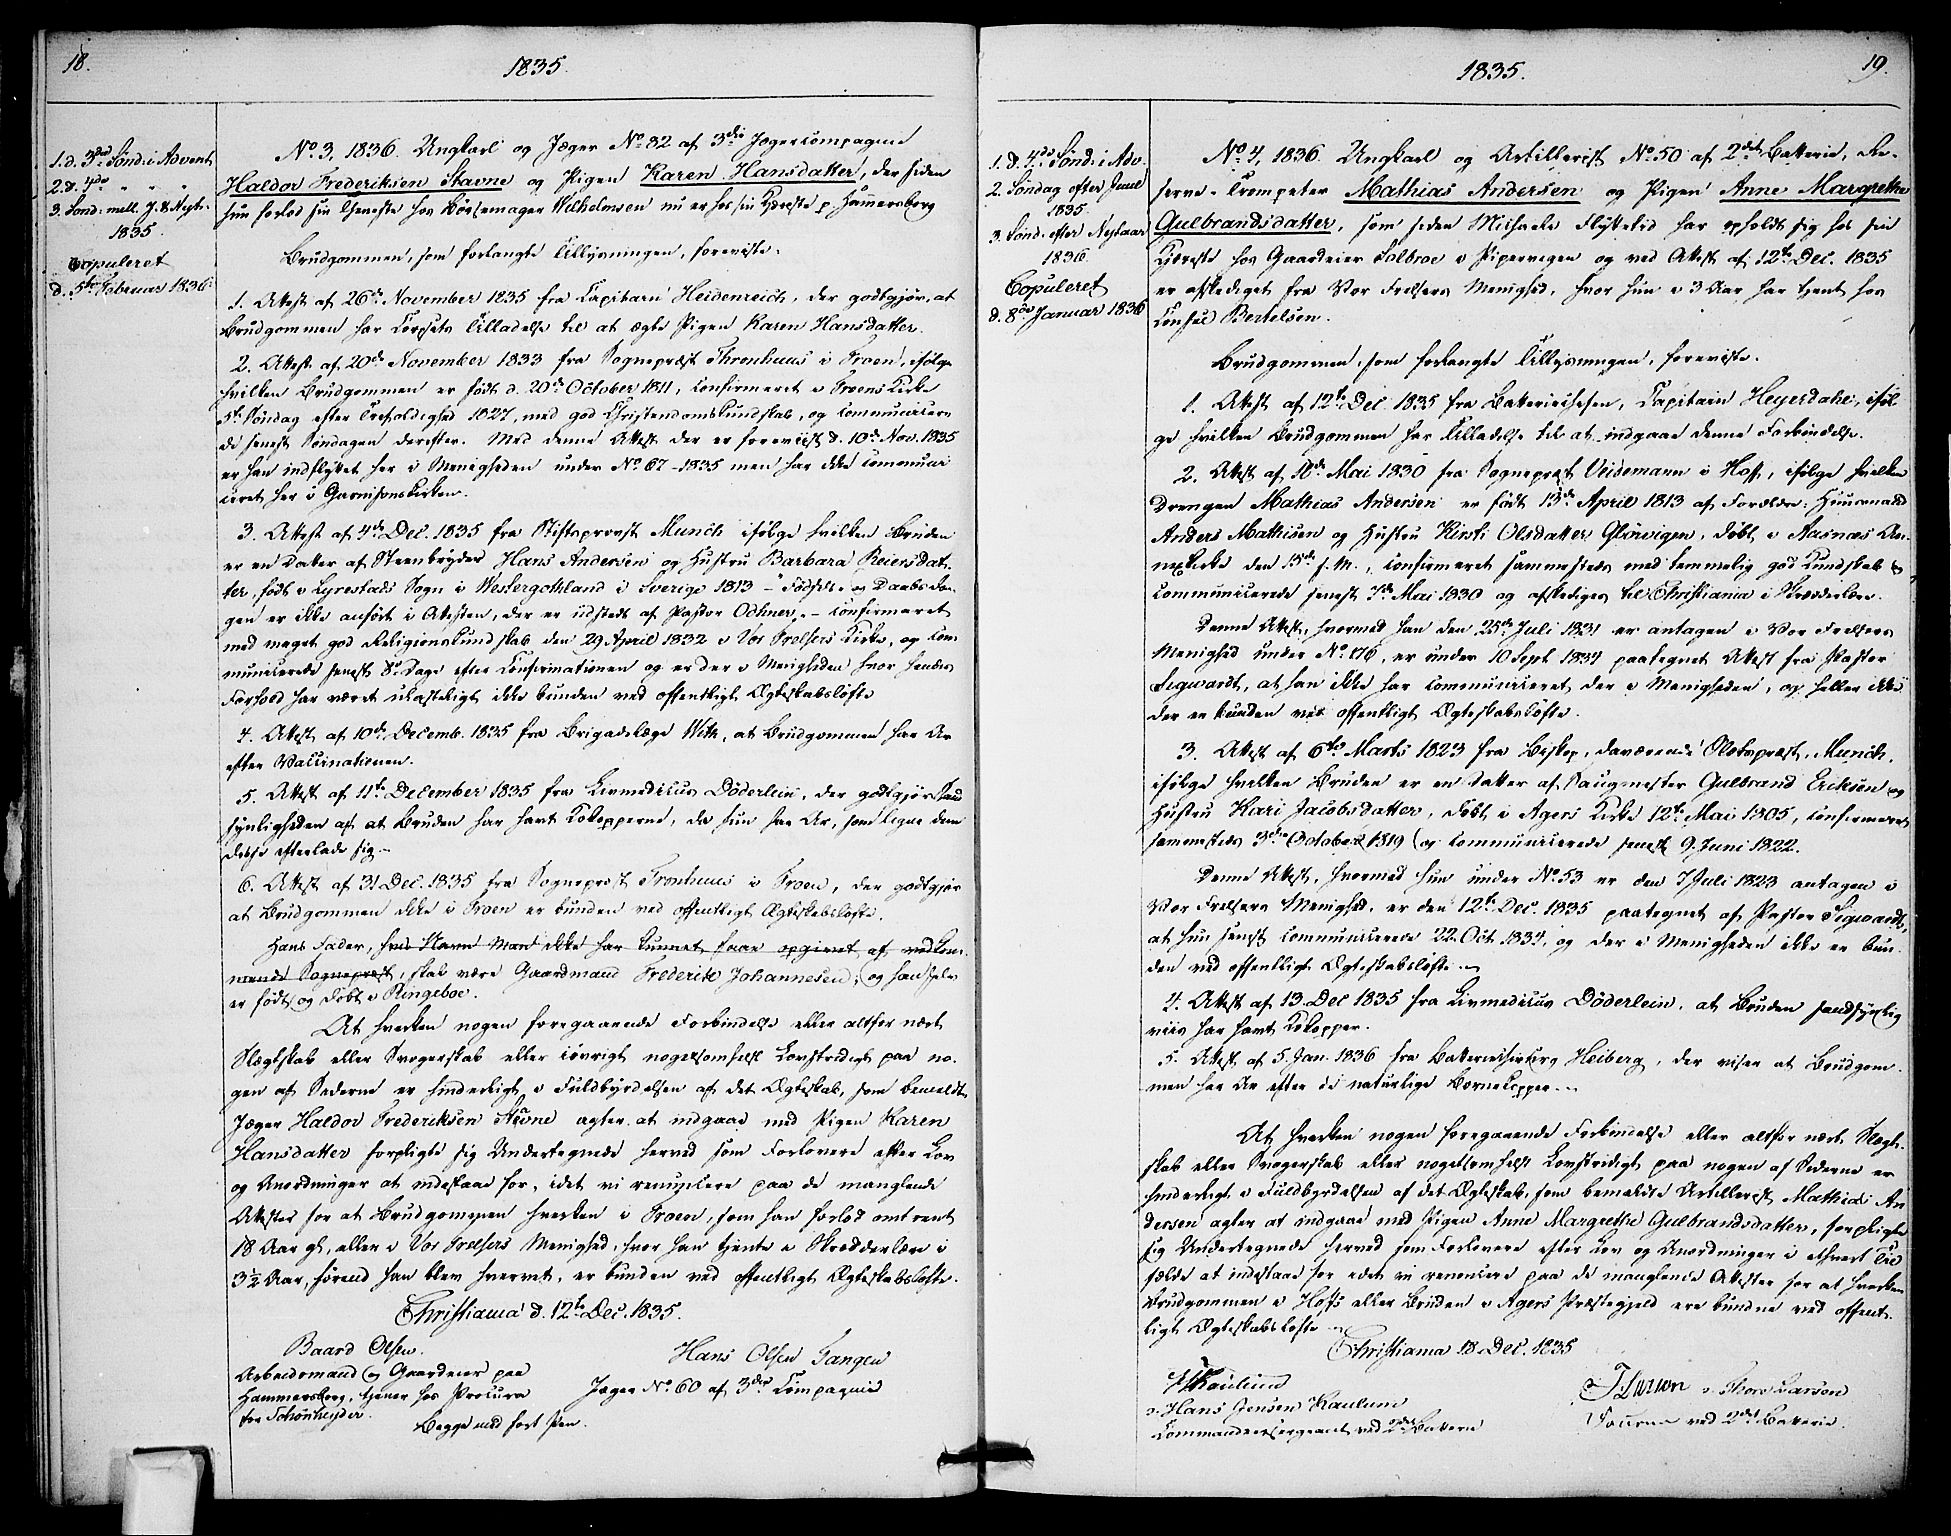 18.
1835.
1. d. 3die Sönd. i Advent
2. d. 4de " " "
3. Sönd. mell. J. & Nytr.
1835.
Copuleret
d. 5te Februar 1836.
No. 3, 1836. Ungkarl og Jæger No. 82 af 3die Jægercompagnie
Haldor Frederiksen Stavne og Pigen Karen Hansdatter, der siden
hun forlod sin Tjeneste hos Börsemager Wilhelmsen nu er hos sin Kjæreste p. Hamersborg
Brudgommen, som forlangte Tillysningen, foreviste.
1. Attest af 26de November 1835 fra Capitain Heidenreich, der godtgjör, at
Brudgommen har Corpsets Tilladelse til at ægte Pigen Karen Hansdatter.
2. Attest af 20de November 1833 fra Sognepræst Thronhuus i Froen, ifölge
hvilken Brudgommen er födt d. 20de October 1811, confirmeret i Froens Kirke
5te Söndag efter Trefoldighed 1827, med god Christendomskundskab, og communicere
de senest Söndagen derefter. Med denne Attest der er foreviist d. 10de Nov. 1835
er han indflyttet her i Menigheden under No. 67 - 1835 men har ikke communi
ceret her i Garnisonskirken.
3. Attest af 4de Dec. 1835 fra Stiftsprovst Munch ifölge hvilken Bruden
er en Datter af Steenbryder Hans Andersen og Hustru Barbara Reiersdat
ter, födt i Lyrestads Sogn i Westergothland i Sverige 1813 - Födsels- og Daabsda
gen er ikke anfört i Attesten, der er udstedt af Pastor Odhner, - confirmeret
med meget god Religionskundskab den 29 April 1832 i Vor Frelsers Kirke, og com
municerede senest 8te Dage efter Confirmationen og er der i Menigheden hvor hendes
Forhold har været ulasteligt ikke bunden ved offentligt Ægteskabslöfte
4. Attest af 10de Decemb. 1835 fra Brigadelæge With, at Brudgommen har Ar
efter Vaccinationen.
5. Attest af 11te December 1835 fra Livmedicus Döderlein, der godtgjör Sand
synligheden af at Bruden har havt Kokopperne, da hun har Ar, som ligne dem
disse efterlade sig. -
6. Attest af 31 Dec. 1835 fra Sognepræst Tronhuus i Froen, der godtgjör
at Brudgommen ikke i Froen er bunden ved offentligt Ægteskabslöfte.
Hans Fader, hvis Navn man ikke har kunnet faae opgivet af vedkom
mende Sognepræst, skal være Gaardmand Frederik Johannesen; og han selv
er födt og döbt i Ringeboe.
At hverken nogen foregaaende Forbindelse eller altfor nært
Slægtskab eller Svogerskab eller iövrigt nogetsomhelst Lovstridigt paa no-
gen af Siderne er hinderligt i Fuldbyrdelsen af det Ægteskab, som bemeldte
Jæger Haldor Frederiksen Stavne agter at indgaae med Pigen Karen
Hansdatter forpligte sig Undertegnede herved som Forlovere efter Lov
og Anordninger at indestaae for, idet vi renuncere paa de manglende
Attester for at Brudgommen hverken i Froen, som han forlod omtrent
18 Aar gl, eller i Vor Frelsers Menighed, hvor han tjente i Skrædderlære i
3½ Aar, förend han blev hvervet, er bunden ved offentligt Ægteskabslöfte.
Christiania d. 12te Dec. 1835.
Baard Olsen.
Arbeidsmand og Gaardeier paa
Hammersborg, tjener hos Procura
tor Schönheyder.
Hans Olsen Tangen
Jæger No. 60 af 3die Compagnie
Begge med fort Pen.
19.
1835.
1. d. 4de Sönd. i Adv.
2. Söndag efter Juul
1835.
3. Sönd. efter Nytaar
1836.
Copuleret
d. 8de Januar 1836
No. 4, 1836. Ungkarl og Artillerist No. 50 af 2det Batterie, Re-
serve-Trompeter Mathias Andersen og Pigen Anne Margrethe
Gulbrandsdatter, som siden Michaeli Flyttetid har opholdt sig hos sin
Kjæreste hos Gaardeier Solbroe i Pipervigen og ved Attest af 12te Dec. 1835
er afskediget fra Vor Frelsers Menighed, hvor hun i 3 Aar har tjent hos
Consul Bertelsen.
Brudgommen, som forlangte Tillysningen, foreviste.
1. Attest af 12te Dec 1835 fra Batteriechefen, Capitain Heyerdahl, iföl
ge hvilken Brudgommen har Tilladelse til at indgaae denne Forbindelse.
2. Attest af 18de Mai 1830 fra Sognepræst Veidemann i Hoff, ifölge hvilken
Drengen Mathias Andersen er födt 13de April 1813 af Forældre: Huusmand
Anders Mathisen og Hustru Kirsti Olsdatter Glorvigen, döbt i Aasnæs An-
nexkirke den 15de s. M., confirmeret sammesteds med temmelig god Kundskab &
communicerede senest 7de Mai 1830 og afskediges til Christiania i Skrædderlære.
Denne Attest, hvormed han den 25de Juli 1831 er antagen i Vor Frelsers
Menighed under No. 176, er under 10 Sept. 1834 paategnet Attest fra Pastor
Sigwardt, at han ikke har communiceret der i Menigheden, og heller ikke
der er bunden ved offentligt Ægteskabslöfte.
3. Attest af 6te Marts 1823 fra Biskop, daværende Slotspræst, Munch,
ifölge hvilken Bruden er en Datter af Saugmester Gulbrand Ericksen og
Hustru Kari Jacobsdatter, döbt i Agers Kirke 12te Mai 1805, confirmeret
sammesteds 3die October 1819 og communicerede senest 9 Juni 1822.
Denne Attest, hvormed hun under No. 53 er den 7 Juli 1823 antagen i
Vor Frelsers Menighed, er den 12te Dec. 1835 paategnet af Pastor Sigwardt,
at hun senest communicerede 22 Oct 1834, og der i Menigheden ikke er bun-
den ved offentligt Ægteskabslöfte. -
4. Attest af 13 Dec 1835 fra Livmedicus Döderlein, at Bruden sandsynlig
viis har havt Kokopper.
5. Attest af 5 Jan. 1836 fra Batteriechirurg Heiberg, der viser at Brudgom-
men har Ar efter de naturlige Börnekopper. -
At hverken nogen foregaaende Forbindelse eller altfor nært Slægt-
skab eller Svogerskab eller nogetsomhelst Lovstridigt paa nogen af Siderne er
hinderligt i Fuldbyrdelsen af det Ægteskab, som bemeldte Artillerist Mathias An
dersen agter at indgaae med Pigen Anne Margrethe Gulbrandsdatter, forpligte
sig Undertegnede herved som Forlovere efter Lov og Anordninger i ethvert Til
fælde at indestaae for idet vi renuncere paa de manglende Attester for at hverken
Brudgommen i Hoffs eller Bruden i Agers Præstegjeld ere bundne ved offent-
ligt Ægteskabslöfte -
Christiania 18 Dec. 1835
HKaulum
o: Hans Jensen Kaulum
Commandeersergeant ved 2det Batterie
TLarson o: Thore Larson
Fourer ved 2det Batterie.